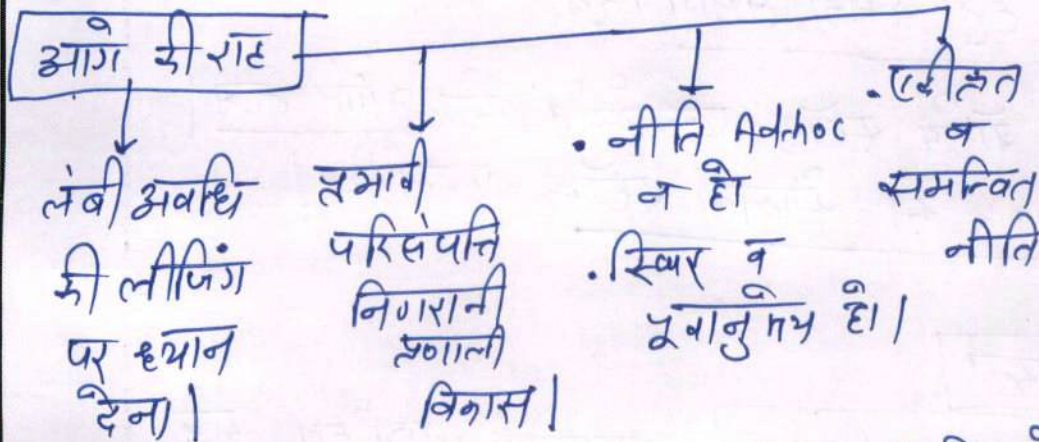 आगे की राह
लंबी अवधि
की लीजिंग
पर ध्यान
देना।
प्रभावी
परिसंपत्ति
निगरानी
प्रणाली
विकास।
• नीति Adhoc
न हो
• स्थिर व
पूर्वानुमेय हो।
• एकीकृत
व
समन्वित
नीति